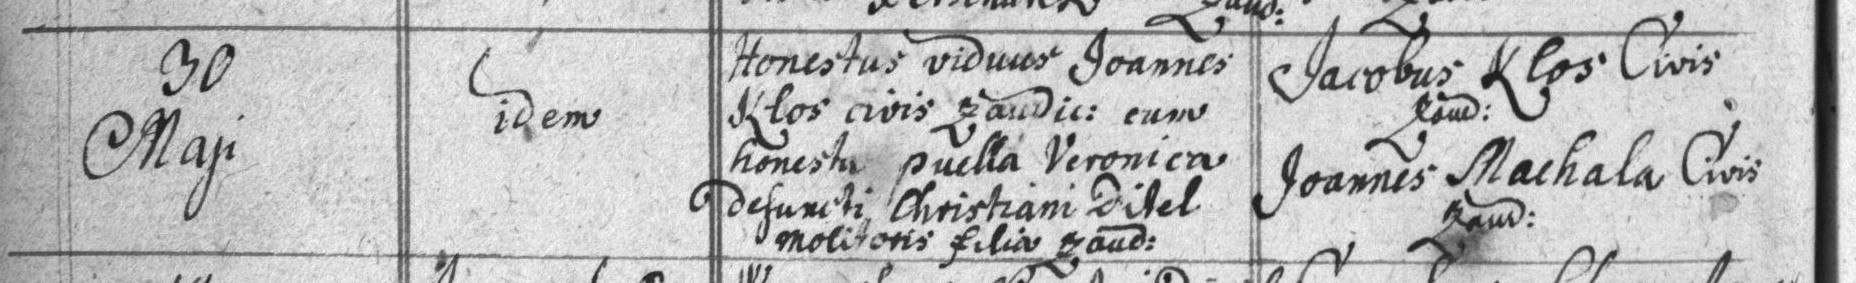 30
Maji
idem
Honestus viduus Joannes
Klos civis Zaudic: cum
honesta puella Veronica
defuncti Christiani Ditel
molitoris filia Zaud:
Jacobus Klos Civis
Zaud:
Joannes Machala Civis
Zaud: